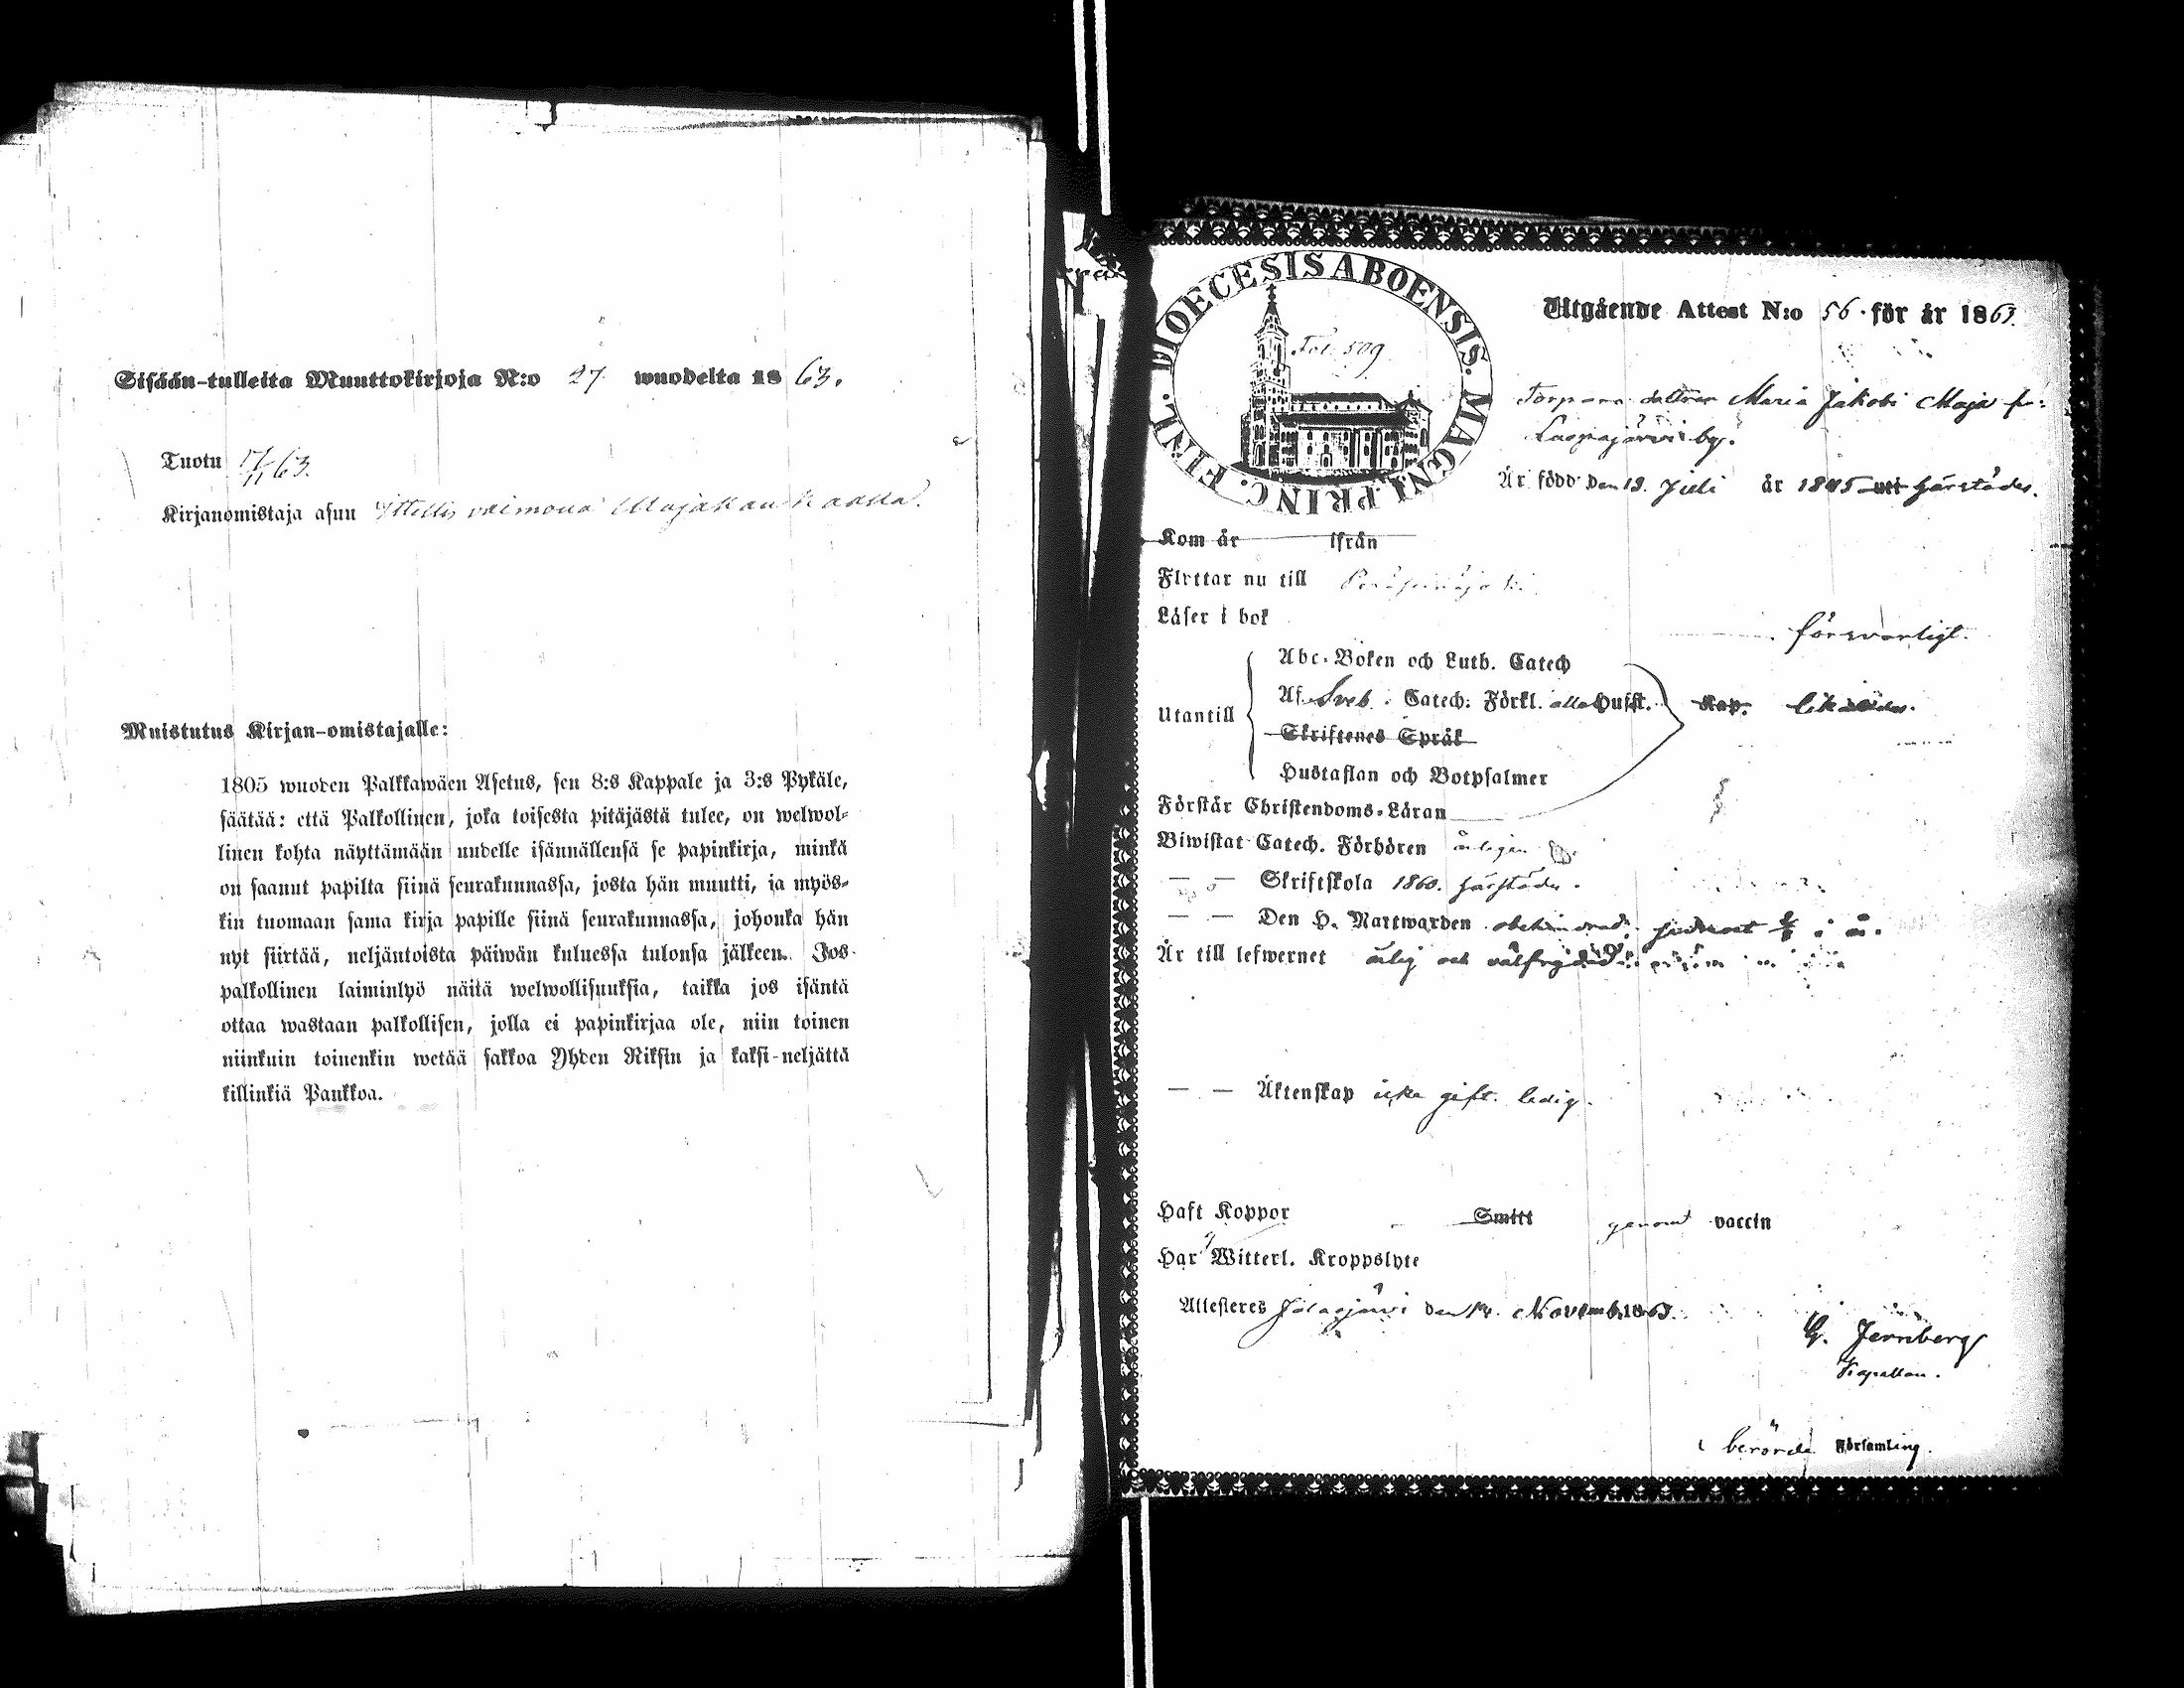 Sisään-tulleita Muuttokirjoja N:o 27 wuodelta 1863.
Tuotu 17/11 63.
Kirjanomistaja asuu vaimona
Muistutus Kirjan-omistajalle:
1805 wuoden Palkkawäen Asetus, sen 8:s Kappale ja 3:s Pykäle,
säätää: että Palkollinen, joka toisesta pitäjästä tulee, on welwol-
linen kohta näyttämään uudelle isännällensä se papinkirja, minkä
on saanut papilta siinä seurakunnassa, josta hän muutti, ja myös-
kin tuomaan sama kirja papille siinä seurakunnassa, johonka hän
nyt siirtää, neljäntoista päiwän kuluessa tulonsa jälkeen. Jos
palkollinen laiminlyö näitä welwollisuuksia, taikka jos isäntä
ottaa wastaan palkollisen, jolla ei papinkirjaa ole, niin toinen
niinkuin toinenkin wetää sakkoa Yhden Riksin ja kaksi-neljättä
killinkiä Pankkoa.
DIOECESIS ABOENSIS. MAGNI PRINC. FINL.
Fol. 509
Utgående Attest N:o 56. för år 1863.
dottren Maria Jakobi Maja
by.
Är född den 19. Juli år 1845 uti härstädes.
Kom år ifrån
Flyttar nu till Peräseinäjoki
Läser i bok försvarligt.
Utantill
Abc-Boken och Luth. Catech
Af Sveb. Catech: Förkl. alla Hufst. Kap. likaledes.
Skriftenes Språk
Hustaflan och Botpsalmer
Förstår Christendoms-Läran
Biwistat Catech. Förhören årligen
— — Skriftskola 1860. härstädes.
— — Den H. Nattwarden obehindrad,
Är till lefwernet ärlig och välfrejdad
— — Äktenskap icke gift. ledig.
Haft Koppor Smitt genom vaccin
Har Witterl. Kroppslyte
Attesteres Jalasjärvi den 14. Novemb. 1863.
G. Jernberg
Kapellan.
i berörde Församling.